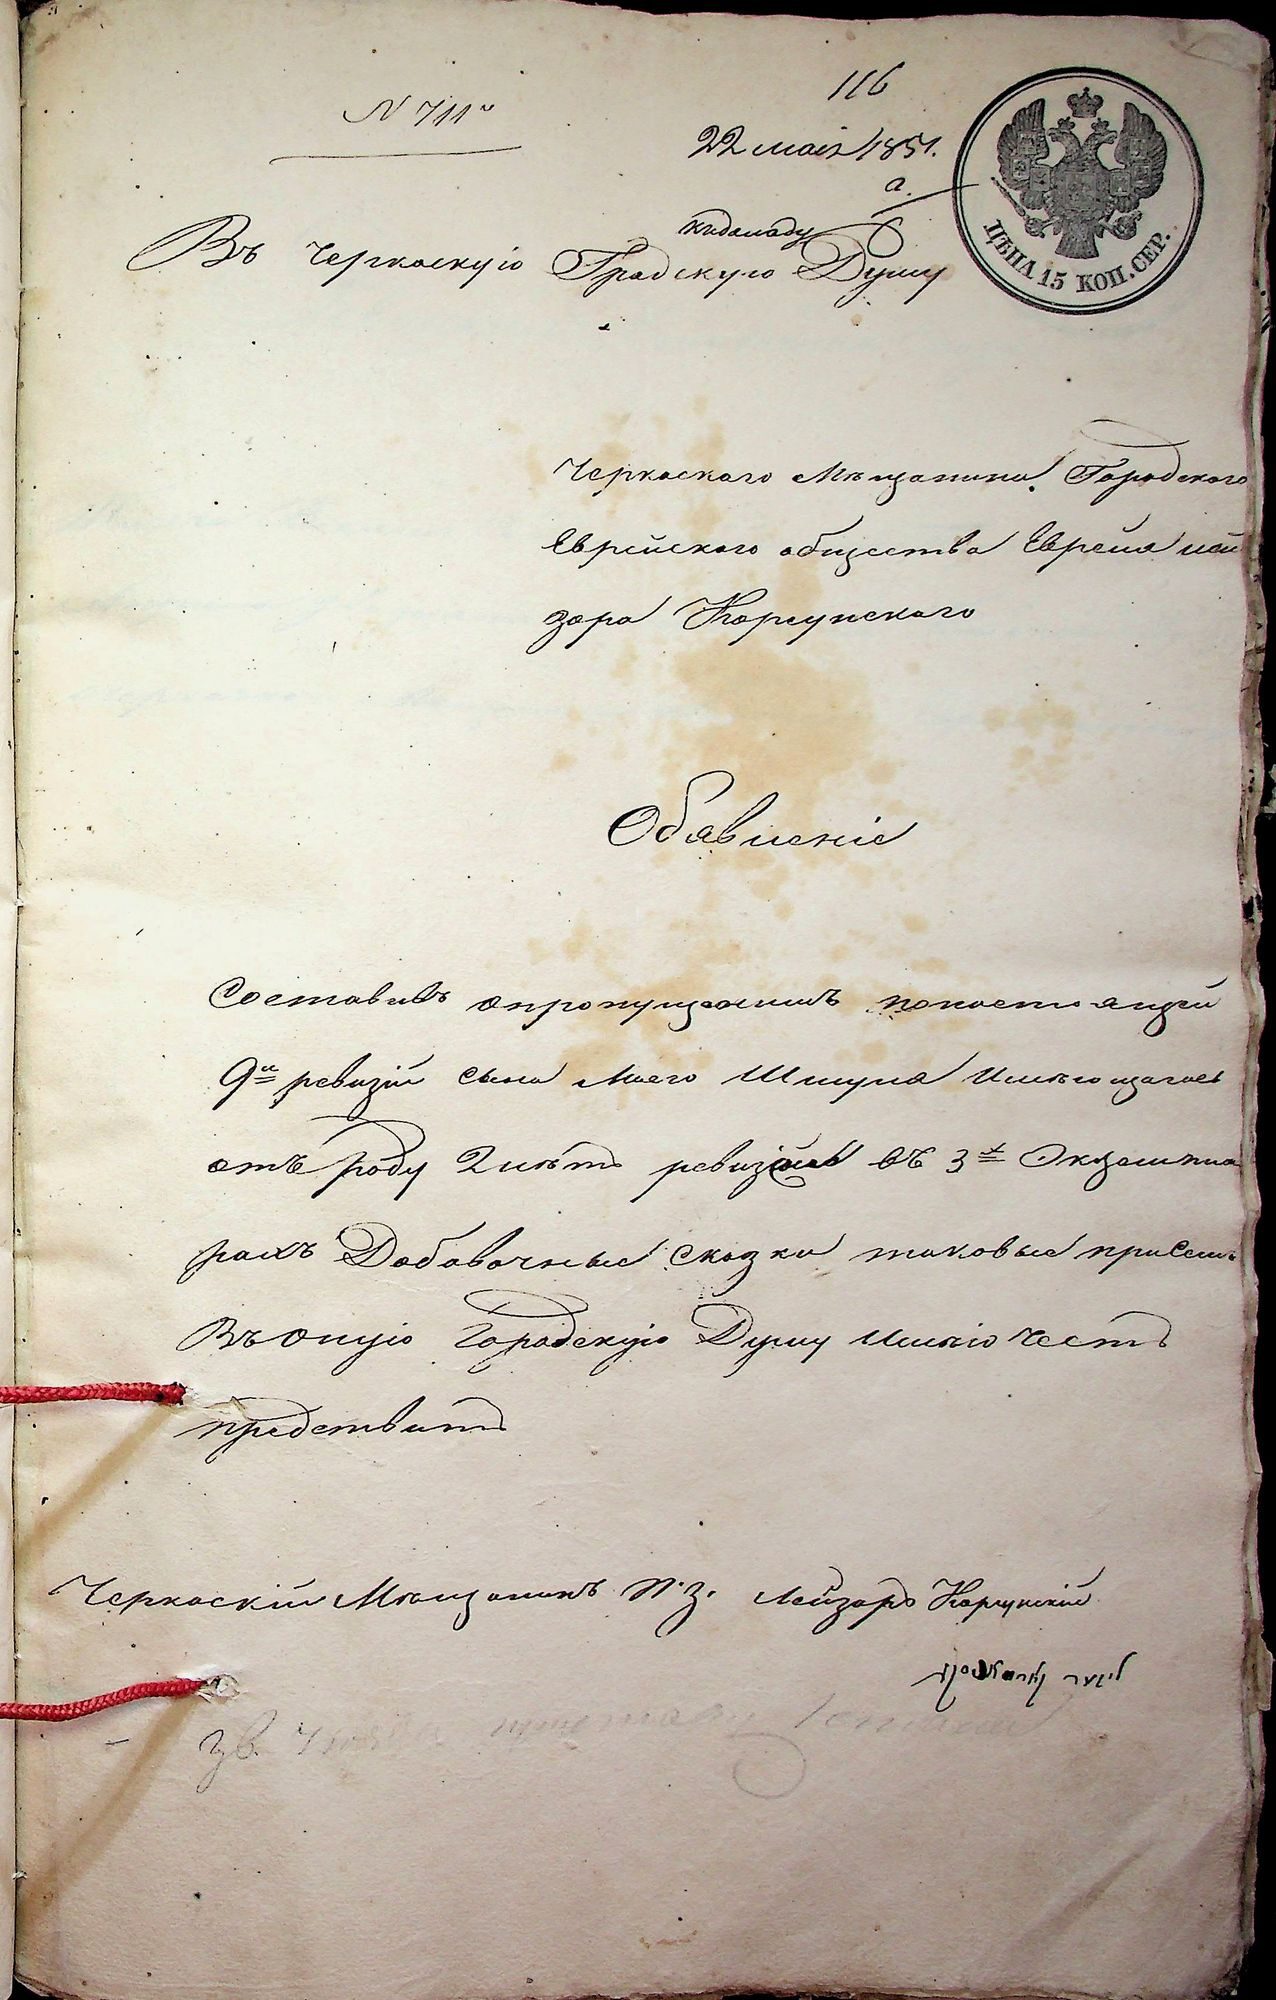 116
N 711й
22 мая 1851.
ЦѢНА 15 КОП. СЕР.
Въ Черкаскую Градскую Думу
Черкаскаго Мѣщанина Городскаго
Еврейскаго общества Еврея Лей
зора Корсунскаго
Обявленіе
Составивъ опропущенимъ понастоящей
9й ревизіи сына Моего Шмуля Имѣющагось
отъ роду 2 лѣтъ въ 3х Окземпля
рахъ Добавочные сказки таковые присемъ
Въ оную Городскую Думу Имѣю Честь
предствить
Черкаскій Мѣщанинъ Лейзоръ Корсунскій